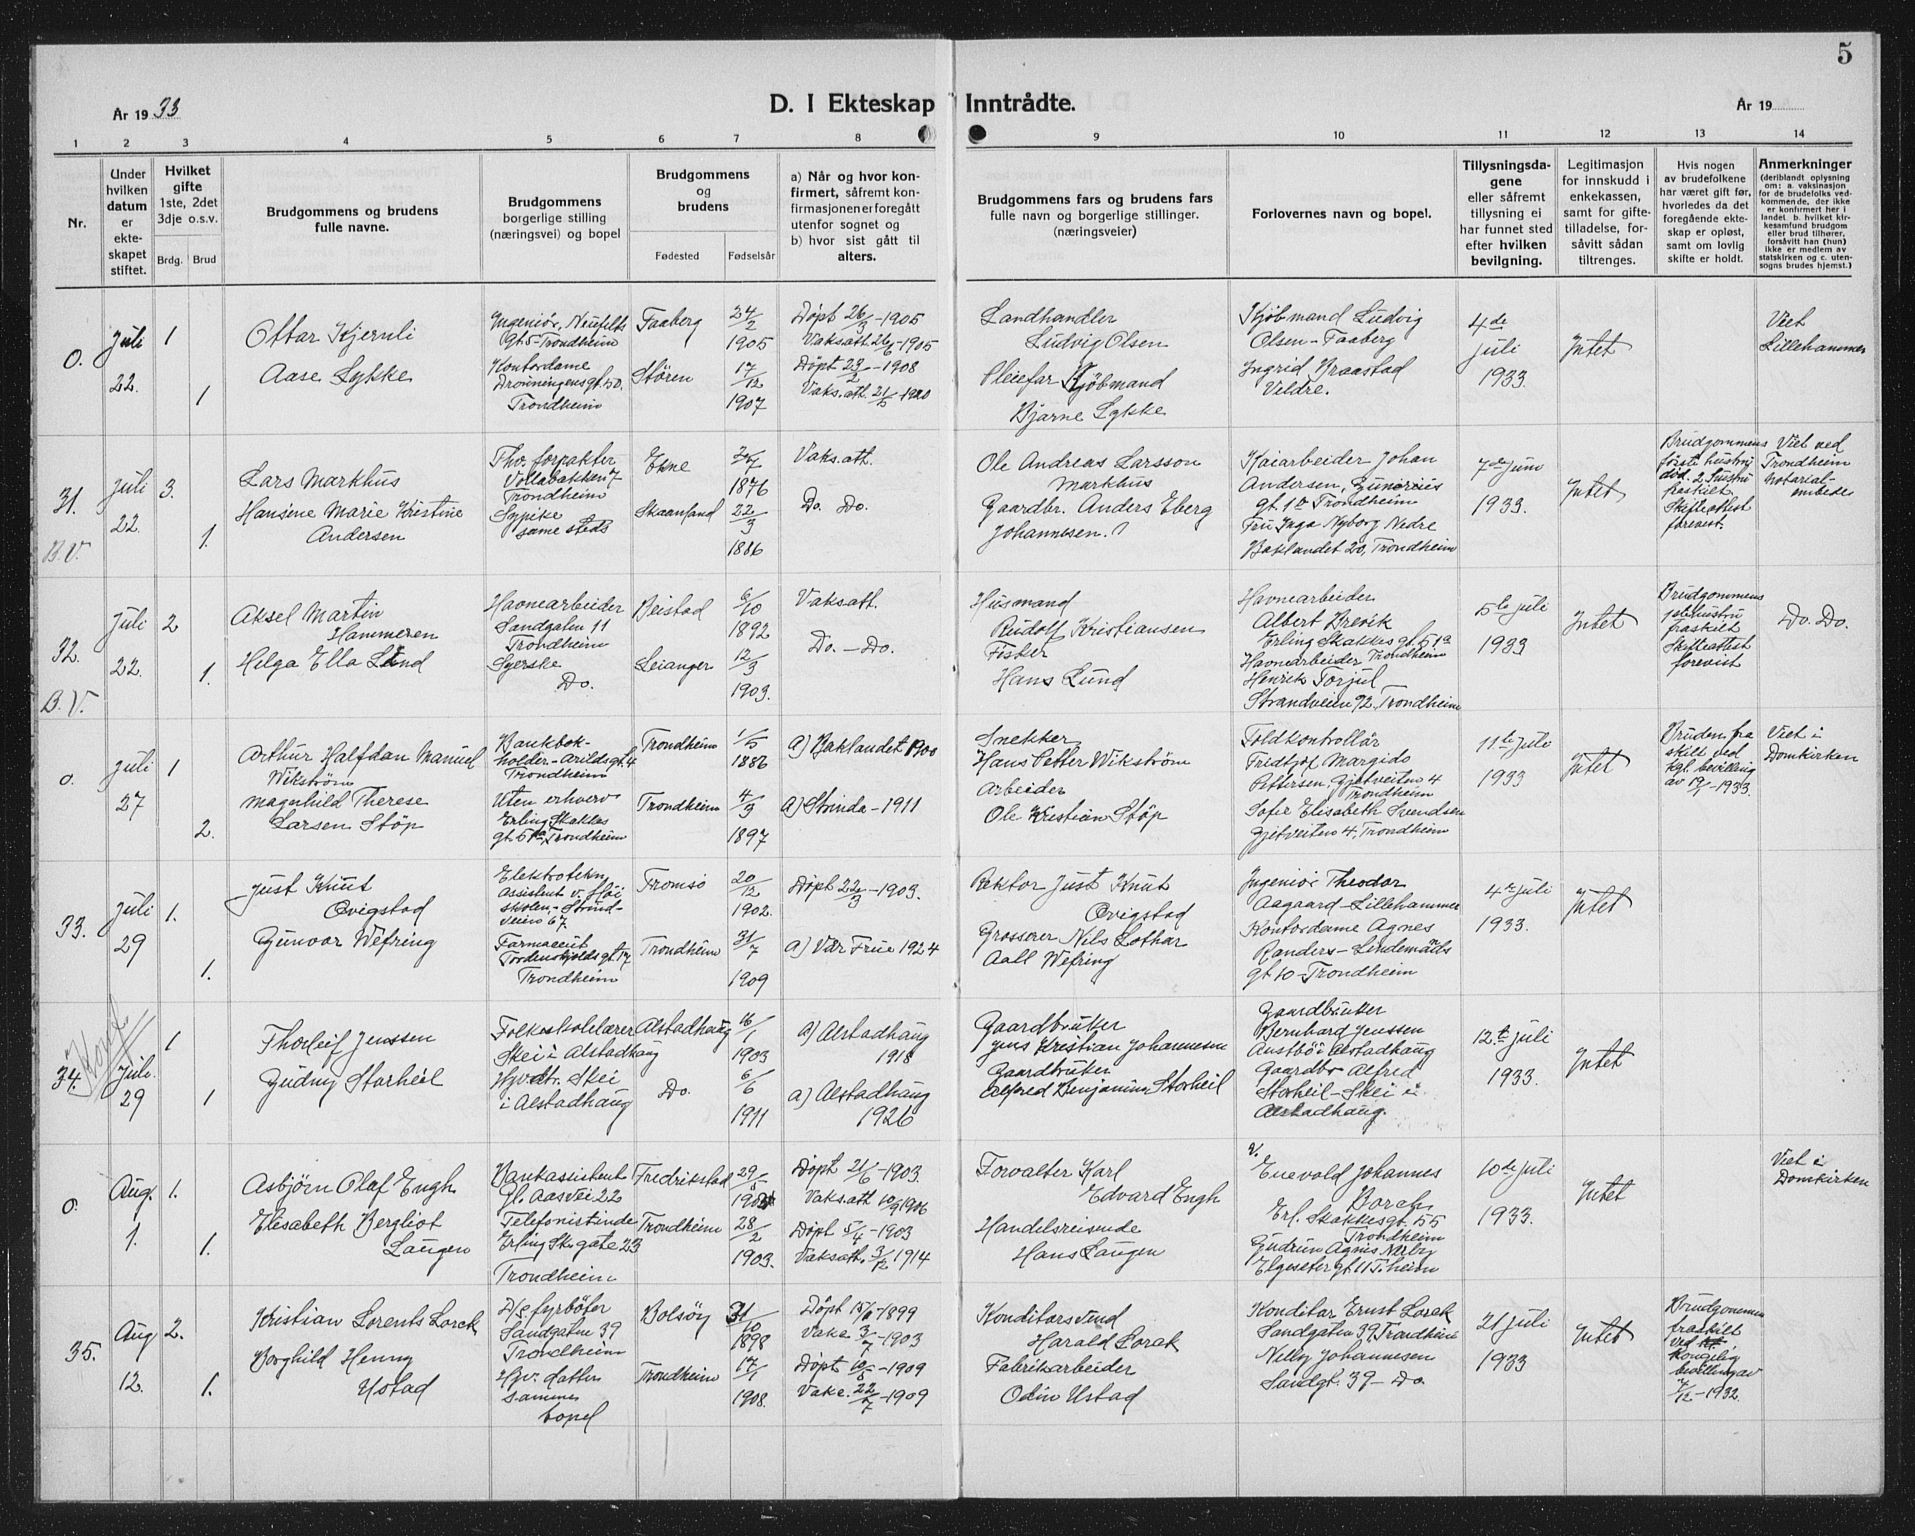 5
År 1933
D. I Ekteskap Inntrådte.
År 19
1 2 3 4 5 6 7 8 9 10 11 12 13 14
Nr.
Under hvilken datum er ekteskapet stiftet.
Hvilket gifte 1ste, 2det 3dje o.s.v.
Brdg. Brud
Brudgommens og brudens fulle navne.
Brudgommens borgerlige stilling (næringsvei) og bopel
Brudgommens og brudens
Fødested Fødselsår
a) Når og hvor konfirmert, såfremt konfirmasjonen er foregått utenfor sognet og
b) hvor sist gått til alters.
Brudgommens fars og brudens fars fulle navn og borgerlige stillinger. (næringsveier)
Forlovernes navn og bopel.
Tillysningsdagene eller såfremt tillysning ei har funnet sted efter hvilken bevilgning.
Legitimasjon for innskudd i enkekassen, samt for giftetilladelse, forsåvitt sådan tiltrenges.
Hvis nogen av brudefolkene har været gift før, hvorledes da det foregående ekteskap er opløst, samt om lovlig skifte er holdt.
Anmerkninger (deriblandt oplysning om: a. vaksinasjon for de brudefolks vedkommende, der ikke er konfirmert her i landet. b. hvilket kirkesamfund brudgom eller brud tilhører, forsåvitt han (hun) ikke er medlem av statskirken og c. utensogns brudes hjemst.)
0.
Juli
22.
1
1
Ottar Kjernli
Aase Lykke
Ingeniør, Neufelts
gt 5 - Trondheim
Kontordame
Dronningensgt. 50.
Trondheim
Faaberg
Støren
24/2
1905
17/12
1907
Døpt 26/3-1905
Vaksatt 26/6-1905
Døpt 23/2-1908
Vaks.att. 21/5-1920
Landhandler
Ludvig Olsen
Pleiefar Kjøbmand
Bjarne Lykke
Kjøbmand Ludvig
Olsen - Faaberg
Ingrid Braastad
Veldre.
4de
juli
1933.
Intet
Viet
Lillehammer
31.
B.V.
Juli
22.
3.
1.
Lars Markhus
Hansine Marie Kristine
Andersen
Fhv. forpakter
Vollabakken 7
Trondheim
Sypike
samme steds
Ekne
Skaanland
1876
22/3
1886
Vaks.att.
Do. Do.
Ole Andreas Larsson
Markhus
Gaardbr. Anders Eberg
Johannesen.
Kaiarbeider Johan
Andersen, Gunerius
gt. 1b Trondheim
Fru Inga Nyborg Nedre
Baklandet 20, Trondheim
7de juni
1933.
Intet
Brudgommens
første hustru
død. 2. hustru
fraskilt
Skifteattest
forevist.
Viet ved
Trondheim
Notarial-
embede
32.
B.V.
Juli
22.
2
1.
Aksel Martin
Hammeren
Helga Ella Lund
Havnearbeider
Sandgaten 11
Trondheim
Syerske
Do.
Beistad
Leianger
6/10
1892
12/3
1903.
Vaksatt.
Do. - Do.
Husmand
Rudolf Kristiansen
Fisker
Hans Lund
Havnearbeider
Albert Brevik
Erling Skakkes gt. 51a
Havnearbeider Trondheim
Henrik Torjul
Strandveien 92, Trondheim
5te juli
1933
Intet
Brudgommens
hustru
fraskilt
Skifteattest
forevist
Do. Do.
0.
Juli
27
1
2.
Arthur Halfdan Manuel
Wikstrøm
Magnhild Therese
Larsen Støp
Bankbok-
holder - Arildsgt. 4
Trondheim
Uten erhverv
Erling Skakkes
gt. 51a, Trondheim
Trondheim
Trondheim
1/5
1886
4/3
1897
a) Baklandet 1900
a) Strinda - 1911
Snekker
Hans Petter Wikstrøm
Arbeider
Ole Kristian Støp
Toldkontrollør
Fridtjof Margido
Pettersen, Gjetveiten 4
Trondheim
Sofie Elisabeth Svendsen
Gjetveiten 4, Trondheim
11te juli
1933
Intet
Bruden fra
skilt ved
kgl. bevilling
av 1933.
Viet i
Domkirken
33.
Juli
29
1.
1.
Just Knut
Qvigstad
Gunvor Wefring
Elektrotekn.
assistent v. Høi
skolen. - Strind-
veien 67.
Farmaceut
Tordenskjoldsgt. 17
Trondheim
Tromsø
Trondheim
20/12
1902.
31/7
1909
Døpt 22/3-1903.
a) Vår Frue 1924
Rektor Just Knut
Qvigstad
Grosserer Nils Lothar
Aall Wefring
Ingeniør Theodor
Aagaard - Lillehammer
Kontordame Agnes
Randers - Lindemans
gt 10 - Trondheim
4de juli
1933.
Intet
34.
Juli.
29
1
1
Thorleif Jenssen
Gudny Storheil
Folkeskolelærer
Skei i Alstadhaug
Hvdtr. Skei
i Alstadhaug
Alstadhaug
Do.
16/1
1903
6/6
1911
a) Alstadhaug
1918
a) Alstadhaug
1926
Gaardbruker
Jens Kristian Johannesen
Gaardbruker
Alfred Benjamin Storheil
Gaardbruker
Bernhard Jenssen
Austbø i Alstadhaug
Gaardbr Alfred
Storheil - Skei i
Alstadhaug.
12.te juli
1933.
Intet
0.
Aug.
1.
1.
1.
Asbjørn Olaf Engh
Elisabeth Bergliot
Laugen
Bankassistent
Gl. Aasvei 22
Telefonistinde
Erling Sk. gate 23
Trondheim
Fredrikstad
Trondheim
29/5
28/2
1903.
Døpt 21/6-1903.
Vaksatt 10/9 1906
Døpt 5/4-1903
Vaksatt. 3/12-1914
Forvalter Karl
Edvard Engh
Handelsreisende
Hans Laugen
Enevold Johannes
Borch
Erl. Skakkesgt. 55
Trondheim
Gudrun Agnes Nerby
Elgeseter gt. 11 T.heim
10de juli
1933.
Intet
Viet i
Domkirken
35.
Aug
12.
2.
1.
Kristian Lorents Lorck
Borghild Henny
Ustad
D/s fyrbøter
Sandgaten 39
Trondheim
Hv. datter
sammes
bopel
Bolsøy
Trondheim
31/10
1898
17/1
1908.
Vaks. 3/7-1903
Døpt 10/5-1909
Vaks. 22/7-1909
Konditorsvend
Harald Lorck
Fabrikarbeider
Odin Ustad
Konditor Ernst Lorck
Sandgaten 39, Trondheim
Nelly Johannesen
Sandgt. 39 - Do
21 juli
1933
Intet
Brudgommen
fraskilt
ved
kongelig
bevilling av
7/12-1932.